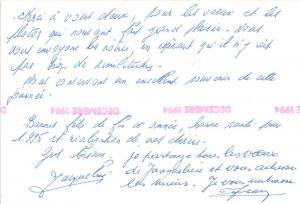 Merci à vous deux, pour les vœux et les
photos qui nous ont fait grand plaisir. Nous
vous envoyons les nôtres, en espérant qu'il n'y ait
pas trop de
Nous conservons un excellent souvenir de cette
journée.
DECEMBRE 1994 DECEMBRE 1994
Bonnes fêtes de fin d'année, bonne santé pour
1995 et réalisation de vos désirs.
Gros bisous, je partage tous les vœux
Jacqueline de Jacqueline et vous adresse
les miens. Je vous embrasse